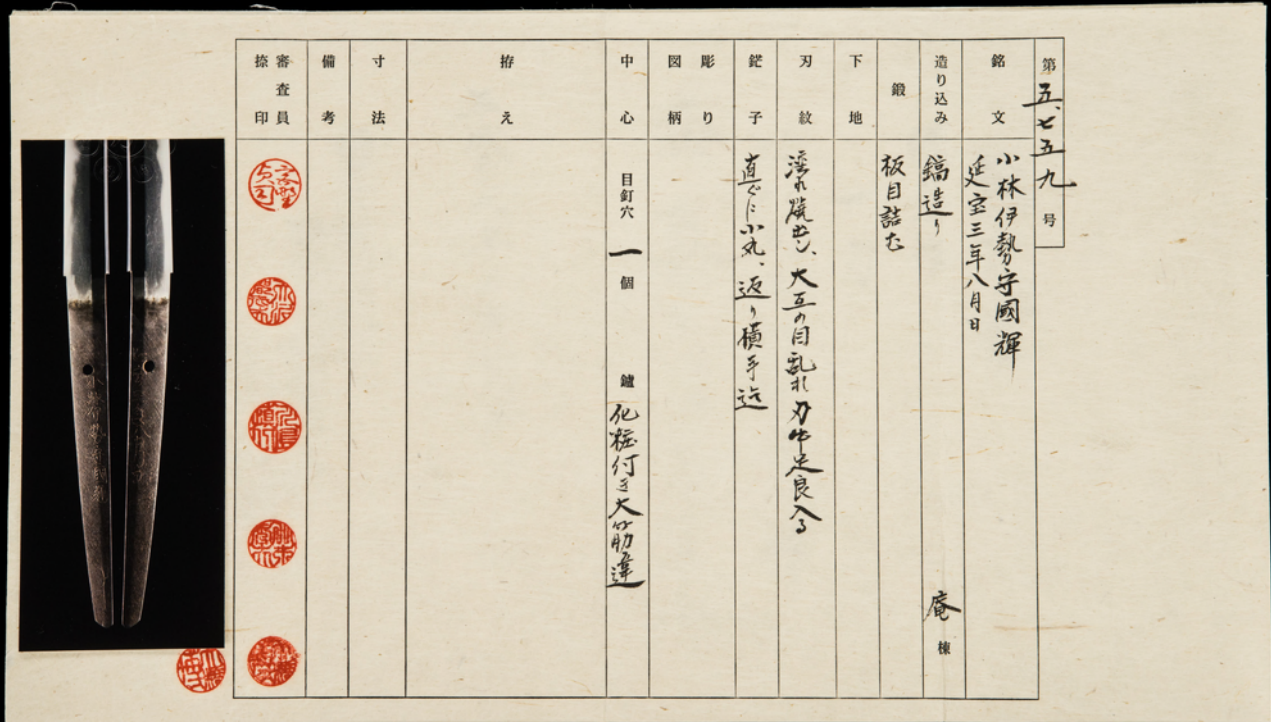 第五、七五九号
銘文
小林伊勢守國輝
延宝三年八月日
造り込み
鎬造り
庵棟
鍛
板目詰む
下地
刃紋
湾れ焼出し、大互の目乱れ刃中足良入る
鋩子
直ぐに小丸、返り横手迄
彫り
図柄
中心
目釘穴 一個 鑢 化粧付き大筋違
拵え
寸法
備考
審査員
捺印